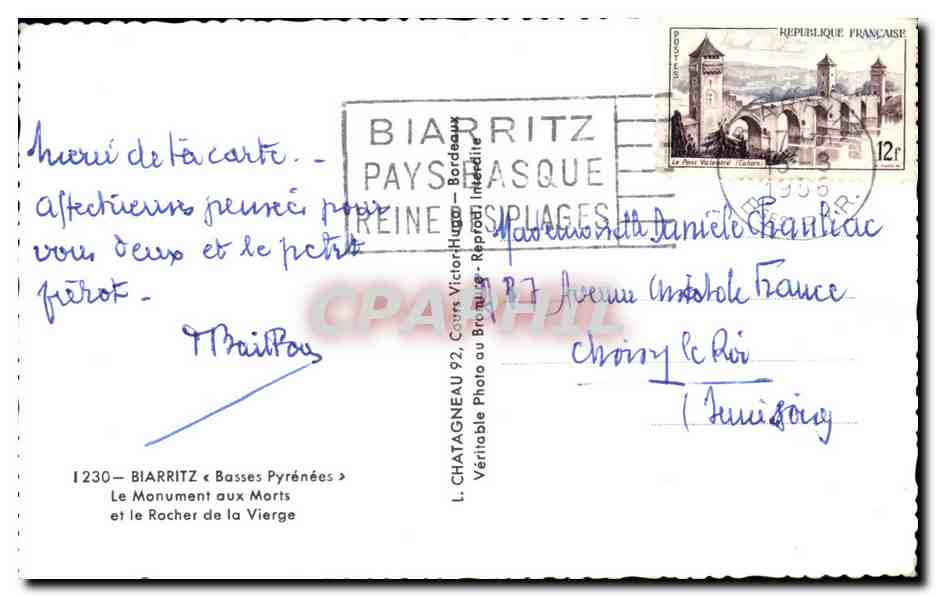 REPUBLIQUE FRANÇAISE
POSTES
Le Pont Valentré (Cahors)
12f
BIARRITZ
PAYS BASQUE
REINE DES PLAGES
1956
Merci de ta carte. -
Affectueuses pensées pour
vous deux et le petit
-
Mademoiselle Danièle
Avenue Anatole France
Choisy le Roi
(Seine
CPAPHIL
L. CHATAGNEAU 92, Cours Victor-Hugo - Bordeaux
Véritable Photo au Bromure - Reprod. Interdite
1230 — BIARRITZ « Basses Pyrénées »
Le Monument aux Morts
et le Rocher de la Vierge